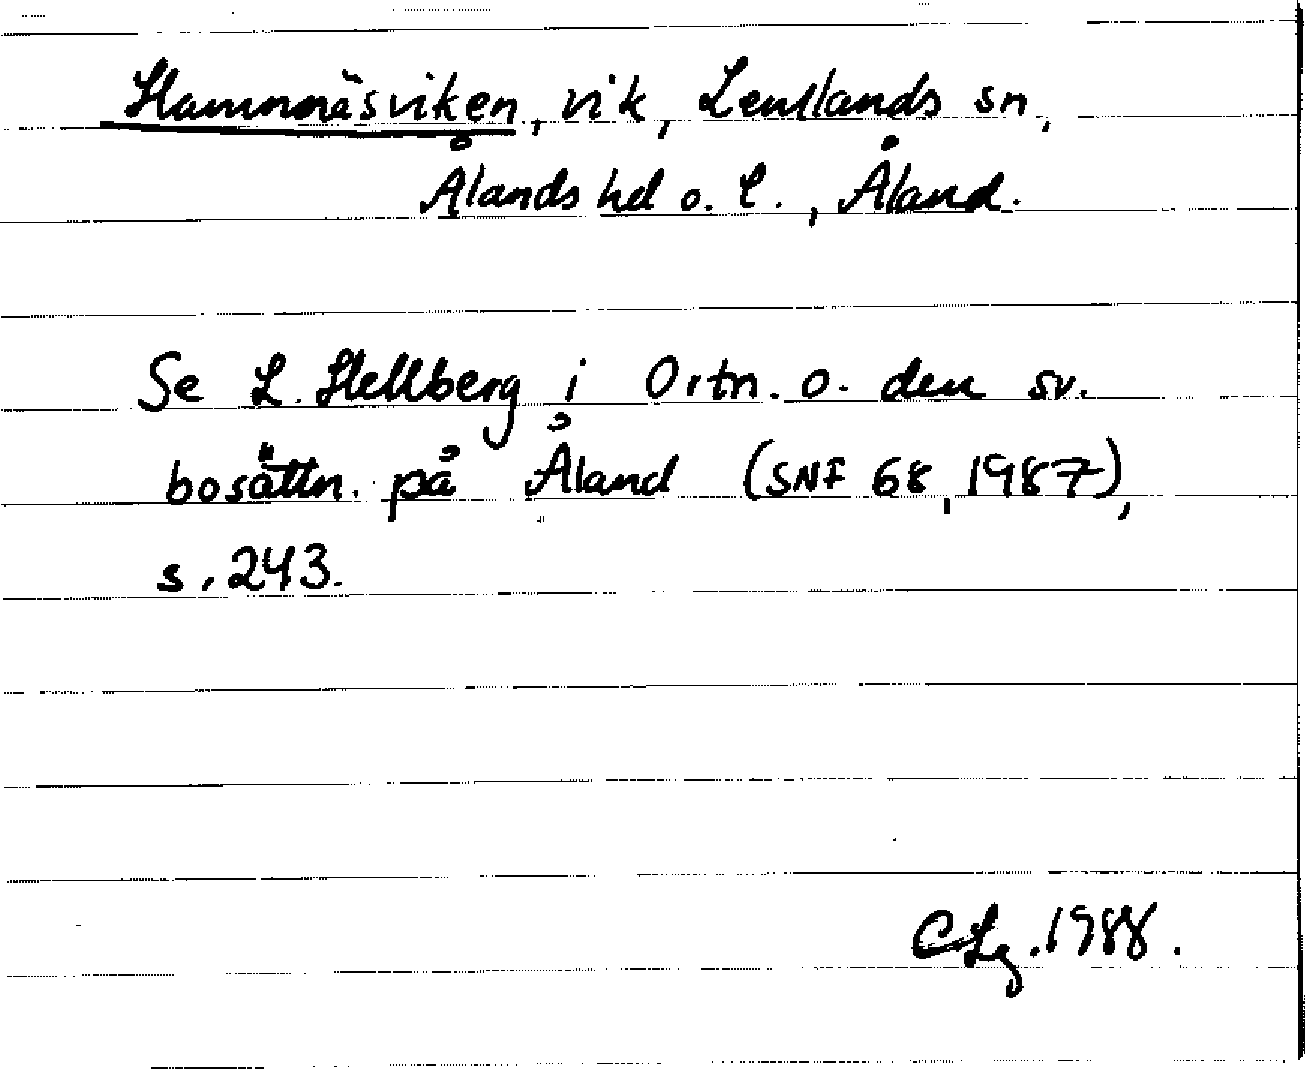 Hamnnäsviken, vik, Lemlands sn,
Ålands hd o. l., Åland.
Se L. Hellberg i Ortn. o. den sv.
bosättn. på Åland (SNF 68, 1987),
s. 243.
CLg. 1988.